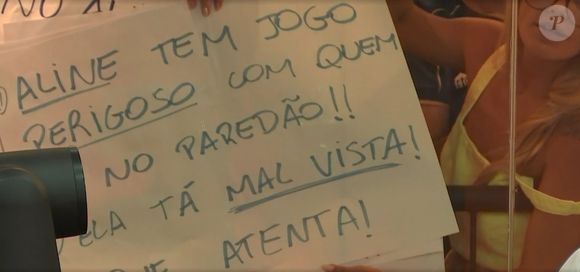 ALINE TEM JOGO
PERIGOSO COM QUEM
NO PAREDÃO!!
ELA TÁ MAL VISTA!
ATENTA!
purepeople